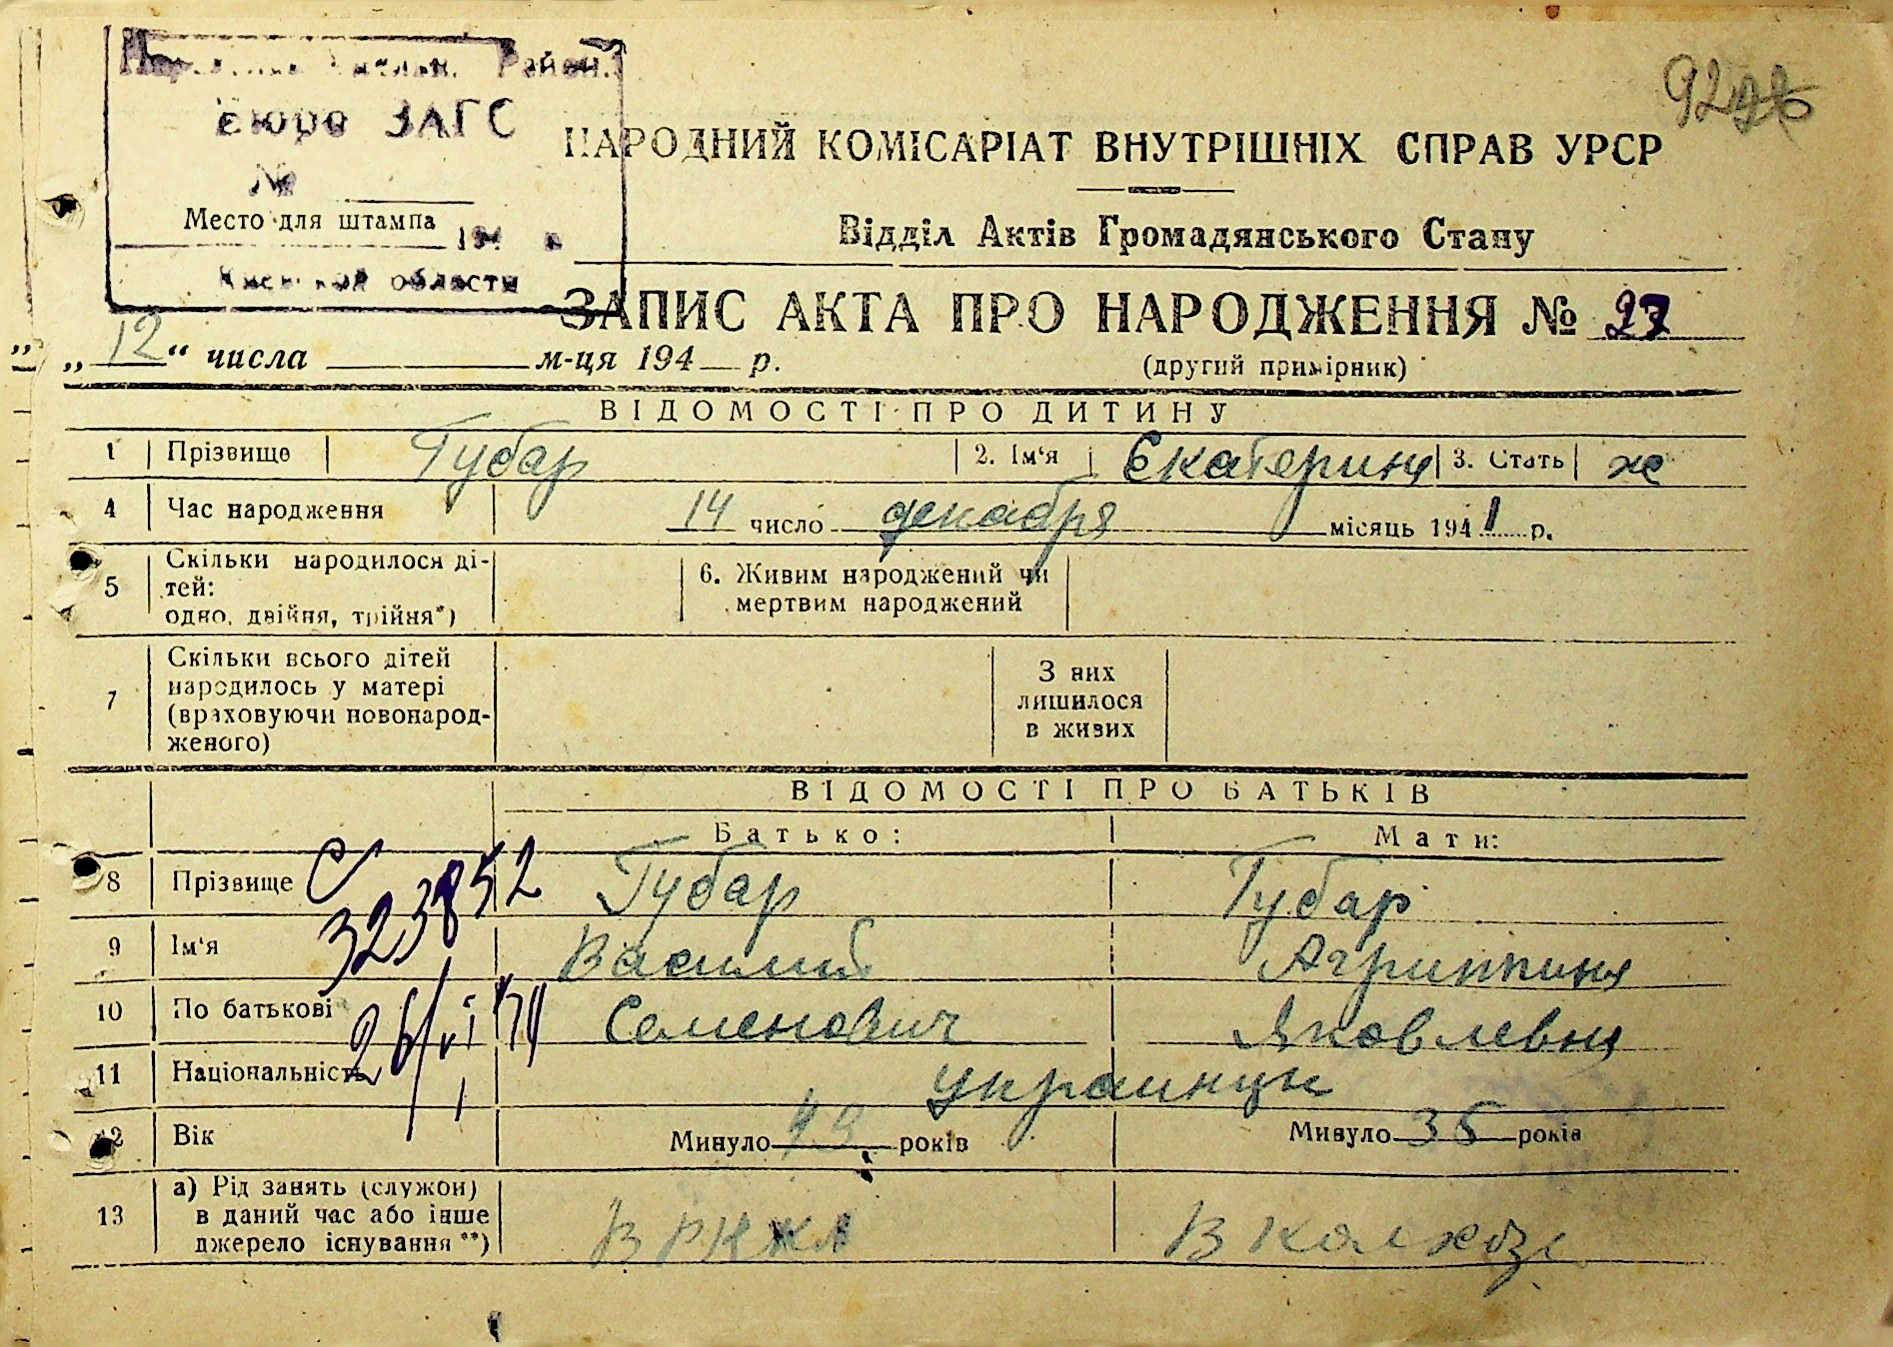 Район.
Бюро ЗАГС
№
Место для штампа
194 г.
Киевской области
92
НАРОДНИЙ КОМІСАРІАТ ВНУТРІШНІХ СПРАВ УРСР
Відділ Актів Громадянського Стану
ЗАПИС АКТА ПРО НАРОДЖЕННЯ № 27
„ 12 “ числа м-ця 194 р.
(другий примірник)
ВІДОМОСТІ ПРО ДИТИНУ
1 Прізвище Губар 2. Ім‘я Екатерина 3. Стать ж
4 Час народження 14 число декабря місяць 1941 р.
5 Скільки народилося ді-
тей:
одно, двійня, трійня*)
6. Живим народжений чи
мертвим народжений
7 Скільки всього дітей
народилось у матері
(враховуючи новонарод-
женого)
З них
лишилося
в живих
ВІДОМОСТІ ПРО БАТЬКІВ
Батько: Мати:
8 Прізвище Губар Губар
9 Ім‘я Василий Агриппина
10 По батькові Семенович Яковлевна
11 Національність украинцы
12 Вік Минуло 43 років Минуло 36 років
13 а) Рід занять (служби)
в даний час або інше
джерело існування **)
В РККА В колхозе
С
323852